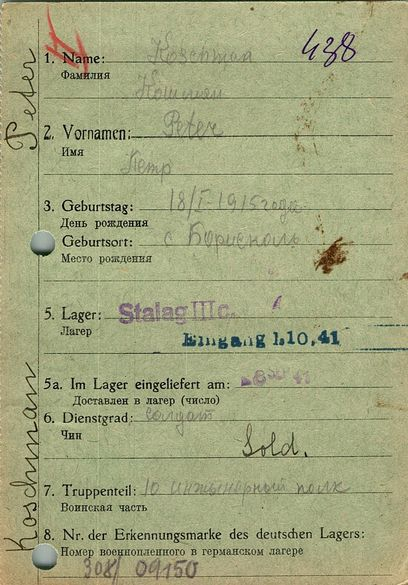 438
Peter Koschmann
1. Name: Koschman
Фамилия
Кошман
2. Vornamen: Peter
Имя
Петр
3. Geburtstag: 18/I-1915 года
День рождения
Geburtsort: с Борисполь
Место рождения
5. Lager: Stalag III C.
Лагерь
Eingang 1.10.41
5a. Im Lager eingeliefert am:
Доставлен в лагерь (число)
6. Dienstgrad: солдат
Чин
Sold.
7. Truppenteil: 10 инжынерный полк
Воинская часть
8. Nr. der Erkennungsmarke des deutschen Lagers:
Номер военнопленного в германском лагере
308/ 09150